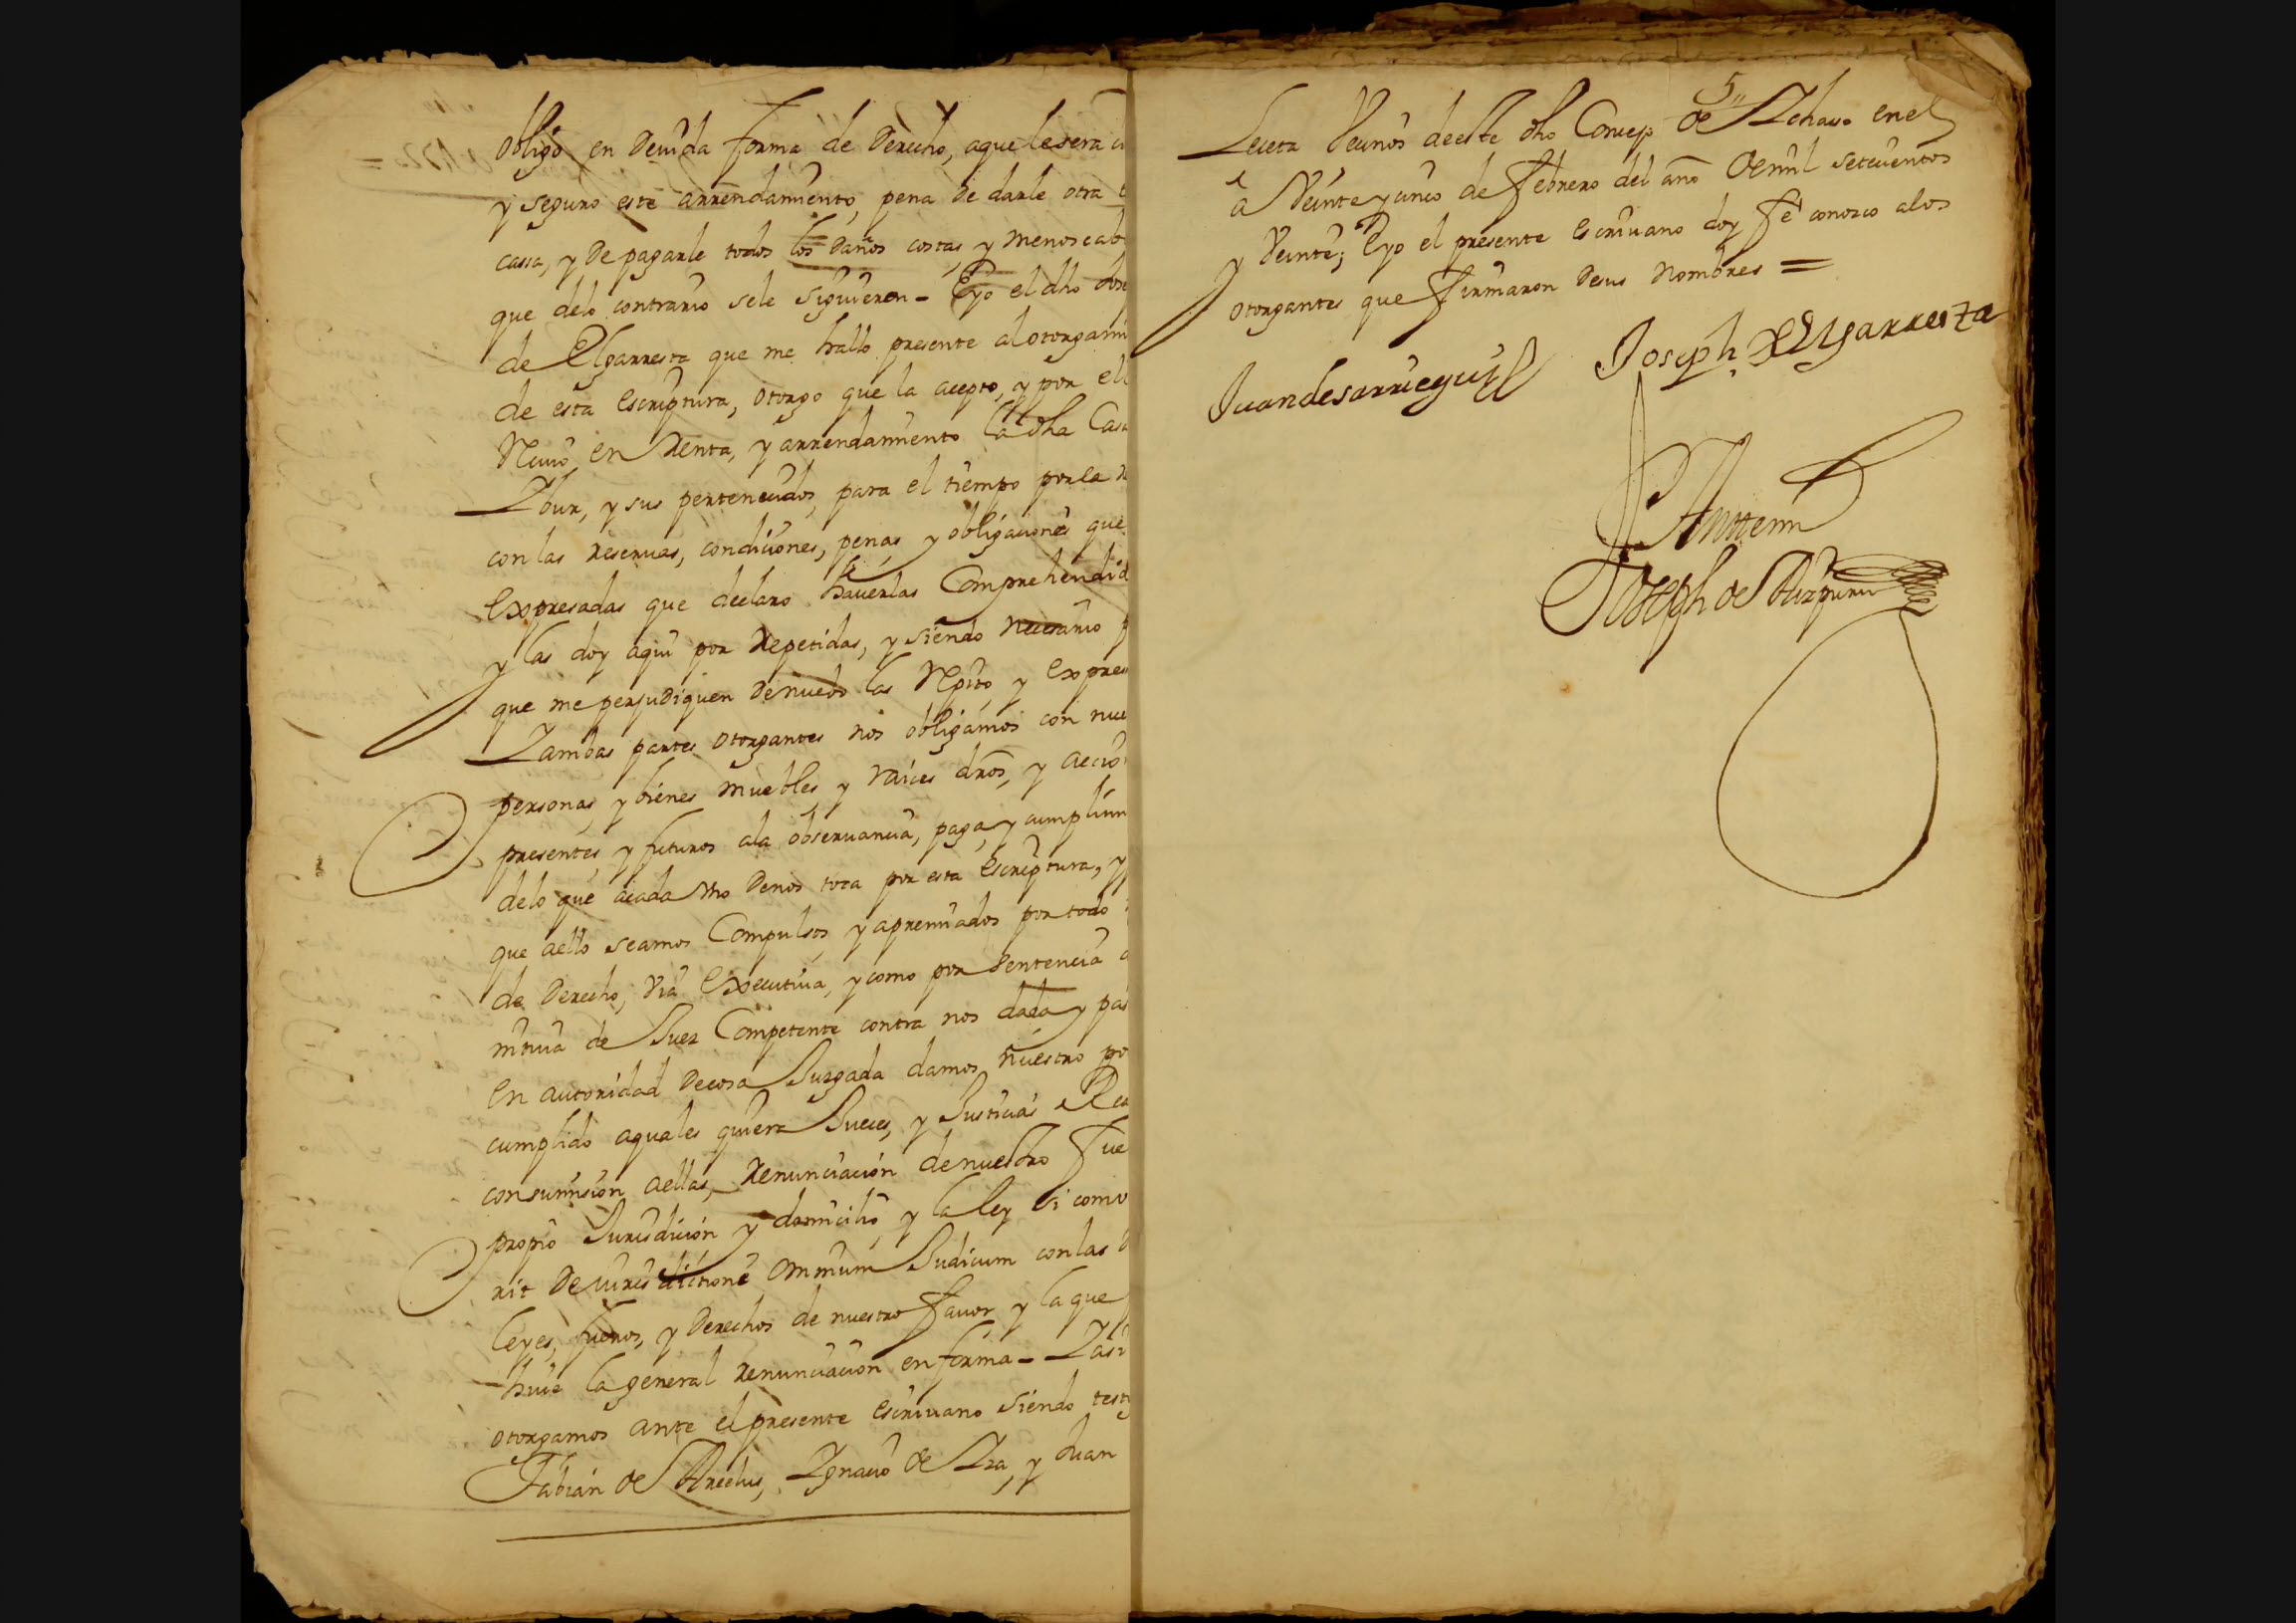 obligo en Devida forma de Derecho, aque le sera ci
y seguro este arrendamiento, pena de darle otra t
cassa, y De pagarle todos los Daños costas, y menoscab
que delo contrario sele siguieren - Eyo el dho Jose
de Elgarresta que me hallo presente al otorgami
de esta escriptura, otorgo que la acepto, y por ell
Recivo en Renta, y arrendamiento la dha Casa
y sus pertenecidos, para el tiempo por la
con las reservas, condiciones, penas y obligaciones que
Expresadas que declaro haverlas Comprehendid
y las doy aqui por Repetidas, y siendo necesario p
que me perjudiquen De nuebo las Repito, y Expres
Yambas partes otorgantes nos obligamos con nue
personas, y bienes muebles, y raices dros, y accio
presentes, y futuros ala observancia, paga, y cumplim
delo que acada vno Denos toca por esta escriptura, y p
que aello seamos Compulsos, y apremiados por todo
de Derecho, via Executiva, y como por Sentencia d
nitiva de Juez Competente contra nos dada y pas
En autoridad De cosa Juzgada damos nuestro po
cumplido aquales quiera Jueces, y Justicias Rea
consumision aellas, Renunciacion de nuestro fue
propio Jurisdicion y domicilio, y la ley si conv
rit De iurisdictione omnium Judicum con las d
leyes, fueros, y Derechos de nuestro favor, y la que
huie la general renunciacion en forma - Yasi
otorgamos ante el presente escrivano siendo testi
Fabian de Arcelus, Ygnacio de Yza, y Juan
5
Vecinos de este dho Concejo de Ychaso en el
a Veinte y cinco de febrero del año de mil setecientos
y Veinte; Eyo el presente escrivano doy fe conozco alos
otorgantes que firmaron De sus nombres =
Juan de sarriegui Joseph de Elgarresta
Ante mi
Joseph de Aizpuru